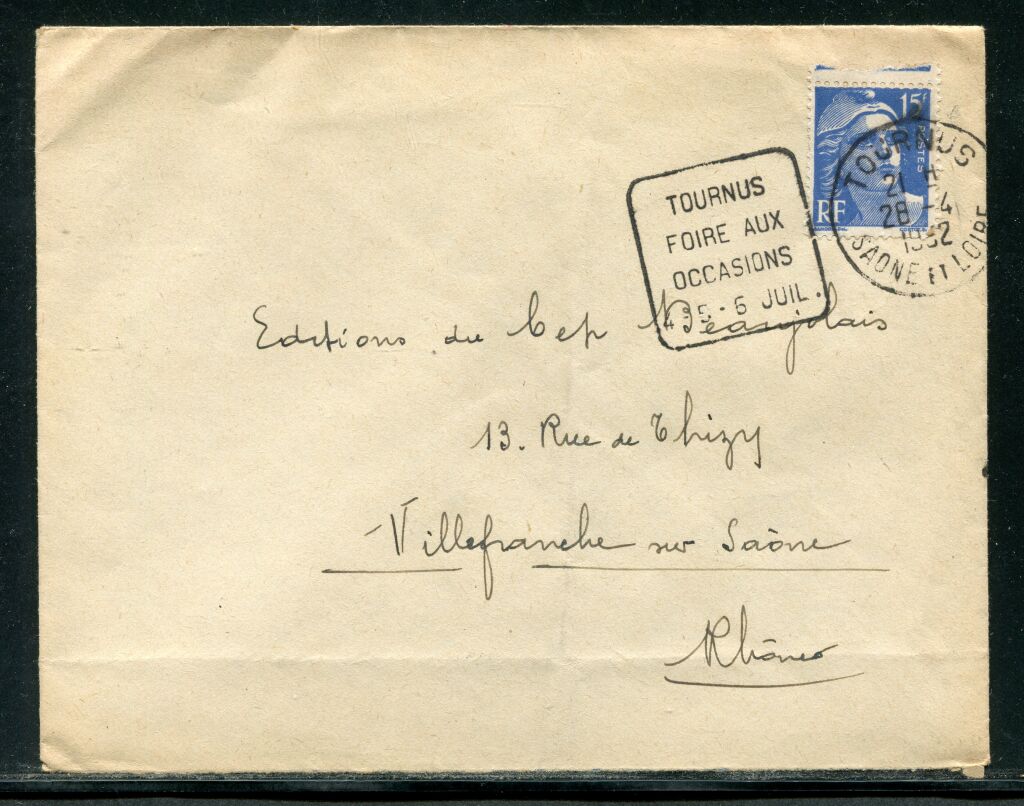 15f
POSTES
RF
TOURNUS
21 H
28 - 4
1952
SAONE ET LOIRE
TOURNUS
FOIRE AUX
OCCASIONS
4-5-6 JUIL.
Editions du Cep Beaujolais
13. Rue de Thizy
Villefranche sur Saône
Rhône